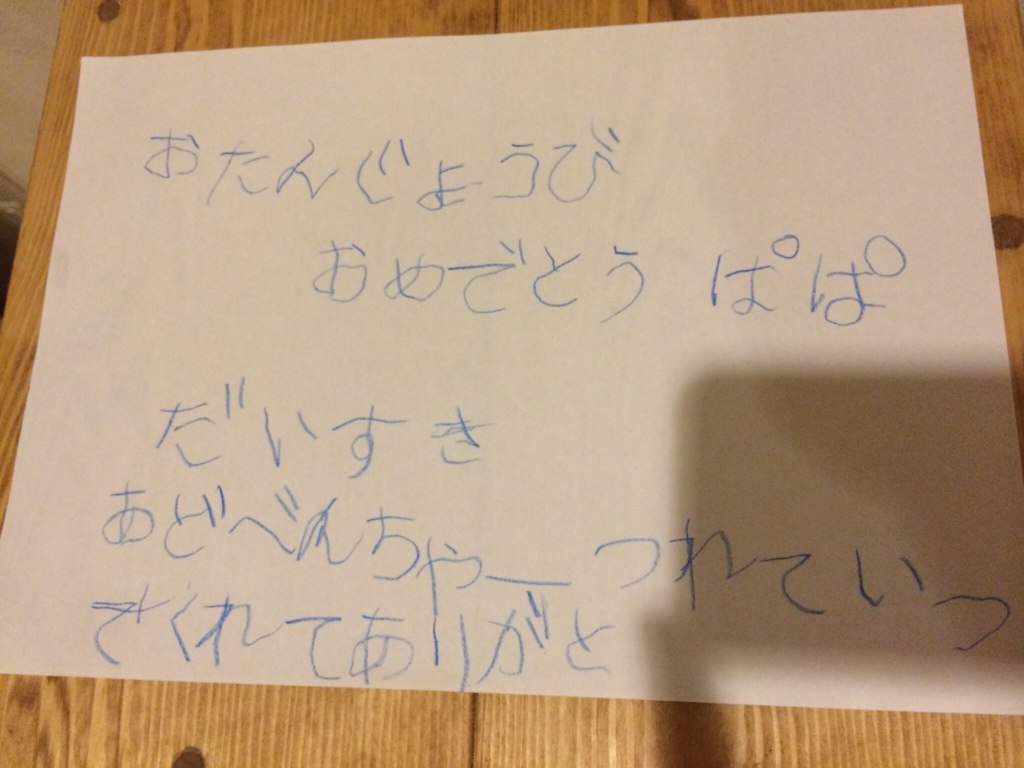 おたんじょうび
おめでとう ぱぱ
だいすき
あどべんちゃーつれていっ
てくれてありがと